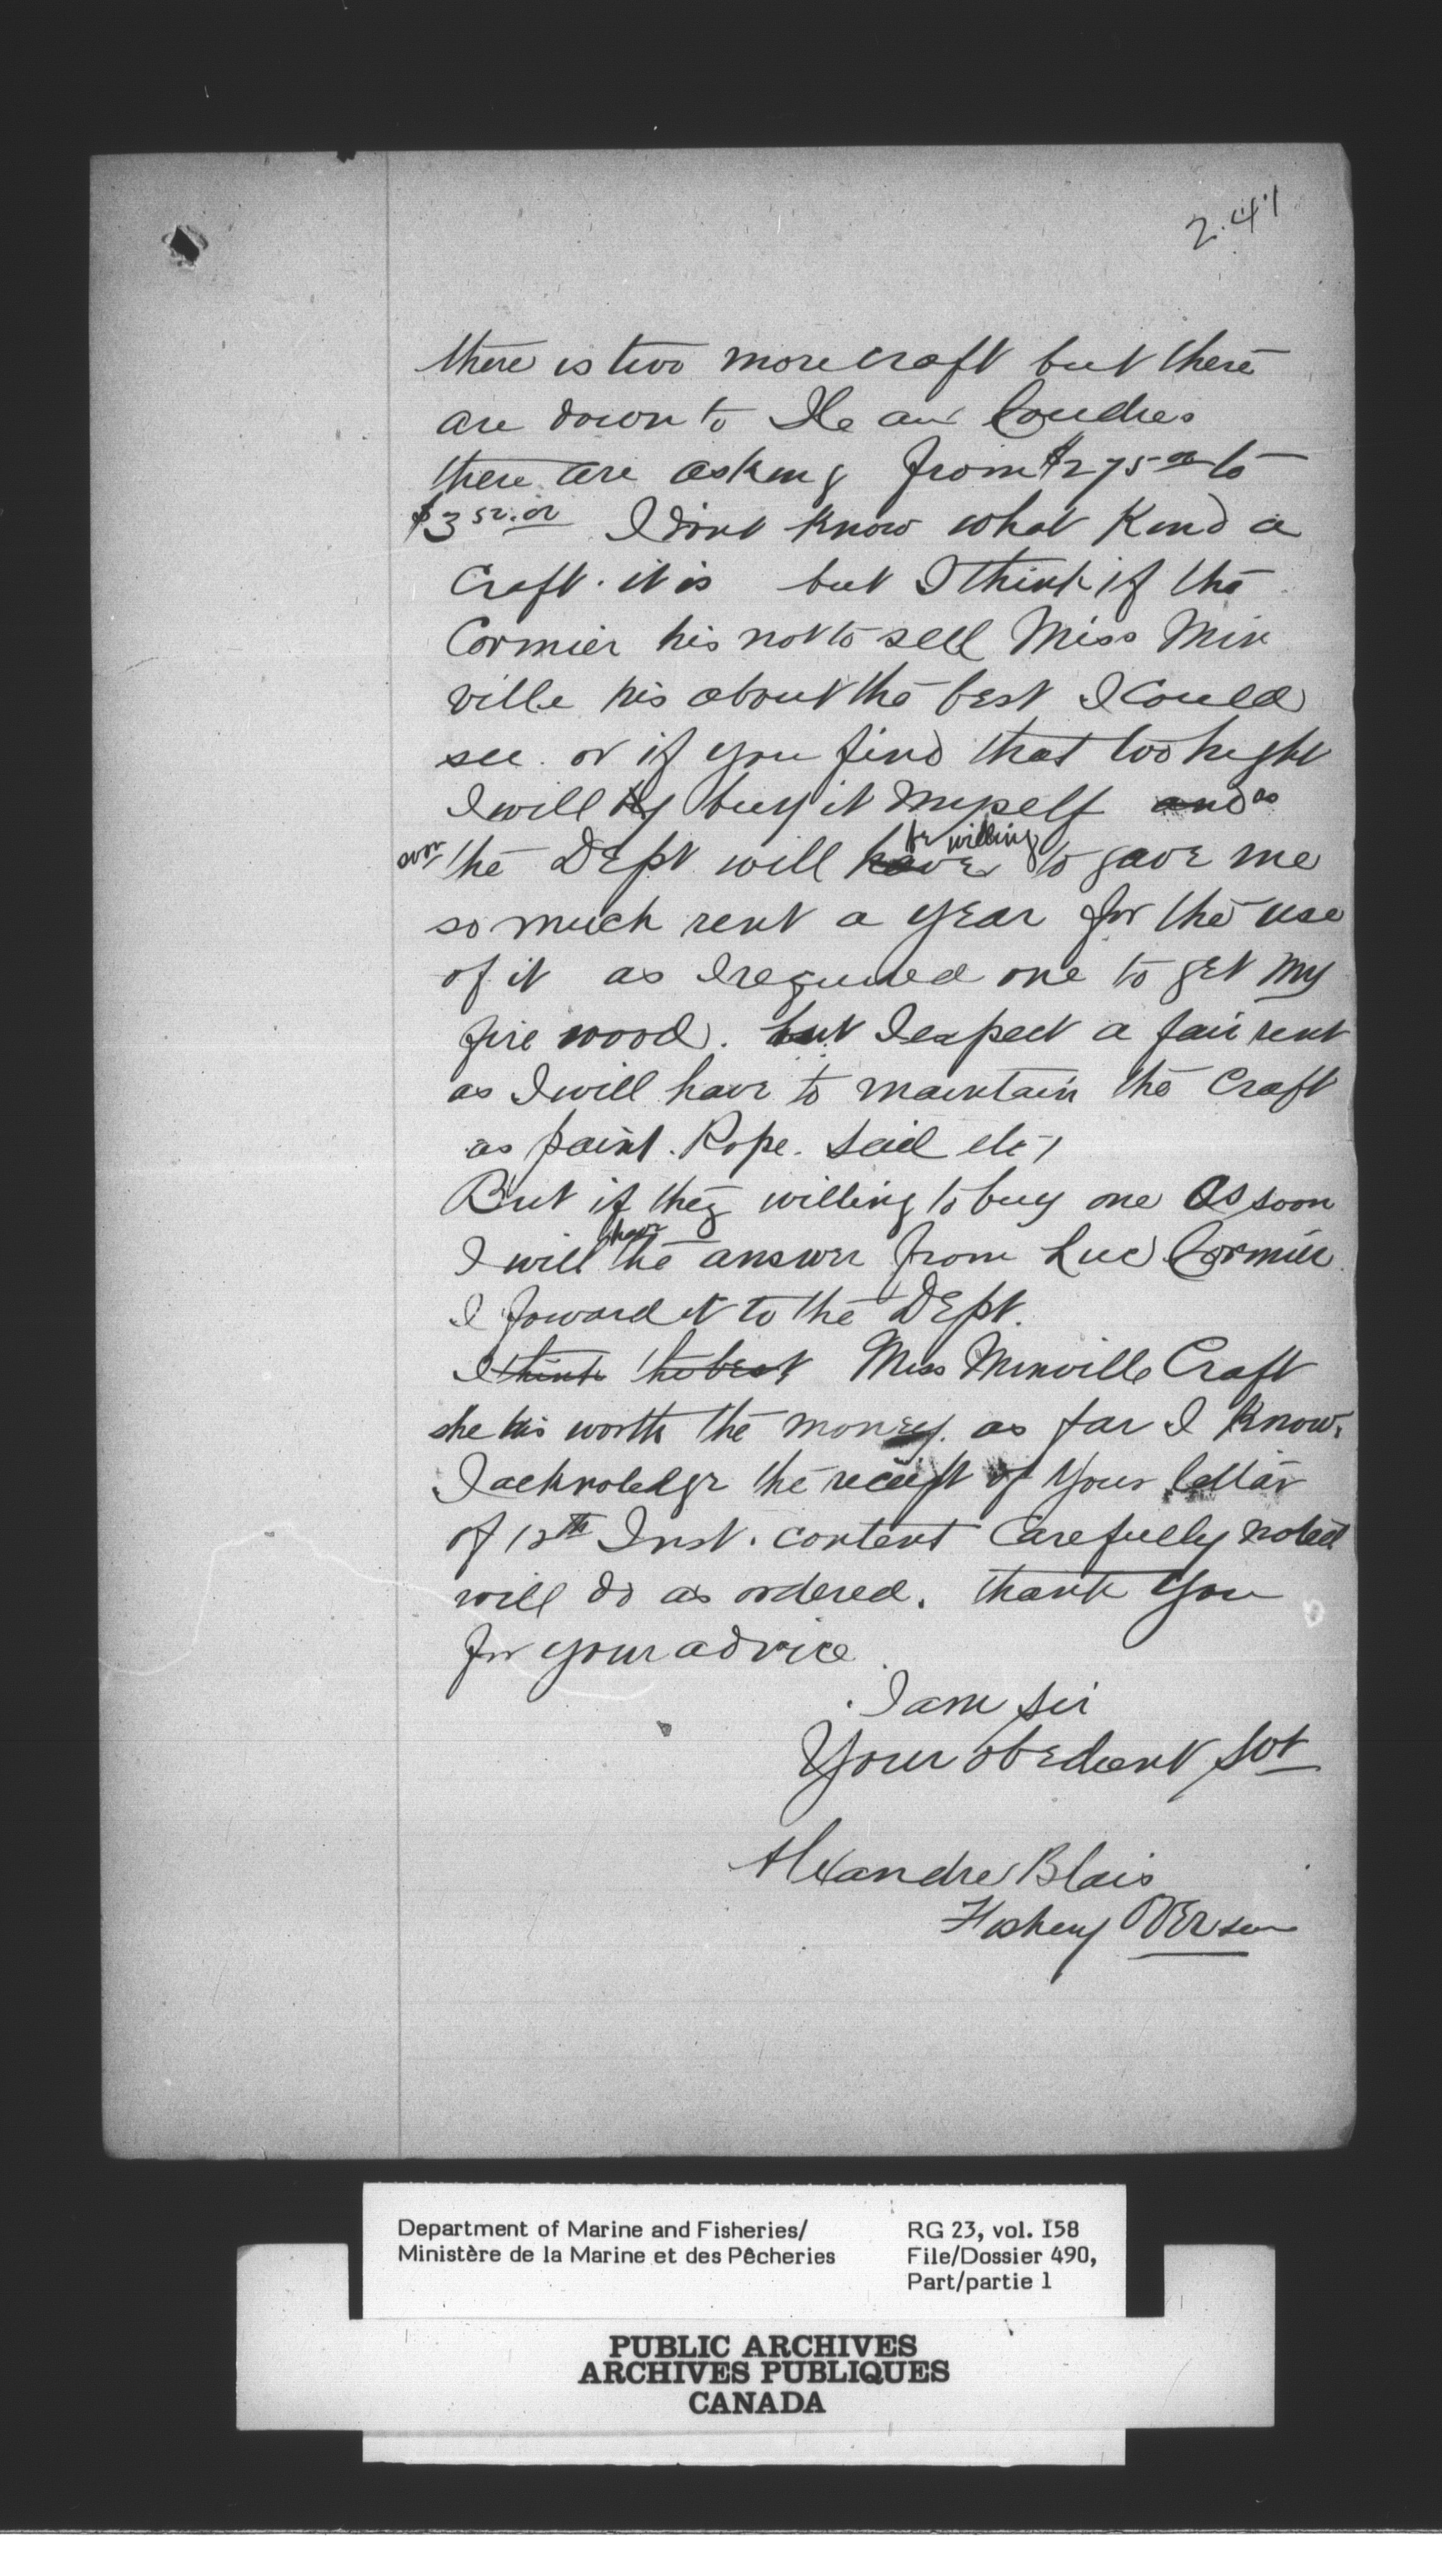 241
there is two more craft but there
are down to Ile aux Coudres
there are asking from $275.00 to
$350.00 I dont know what Kind a
Craft. it is but I think if the
Cormier his not to sell Miss Min
ville his about the best I Could
see. or if you find that too hight
I will buy it myself and as
soon the Dept will have be willing to gave me
so much rent a year for the use
of it as I required one to get my
fire wood. but I expect a fair rent
as I will have to maintain the Craft
as paint. Rope. Sail etc,
But if they willing to buy one as soon
I will have the answer from Luc Cormier.
I foward it to the Dept.
I think the best Miss Minville Craft
she his worth the money. as far I Know.
I acknoledge the receipt of your letter
of 12th Inst. content Carefully noted
will do as ordered. thank you
for your advice
I am Sir
Your obedient Svt
Alexandre Blais
Fishery Overseer
Department of Marine and Fisheries/ RG 23, vol. 158
Ministère de la Marine et des Pêcheries File/Dossier 490,
Part/partie 1
PUBLIC ARCHIVES
ARCHIVES PUBLIQUES
CANADA